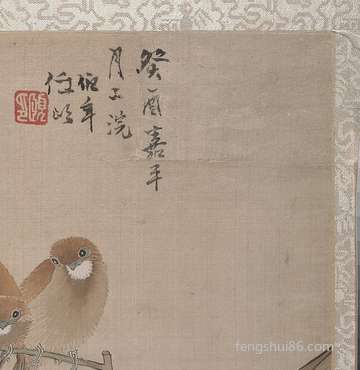 癸酉嘉平
月上浣
伯年
任頤
頤印
fengshui86.com